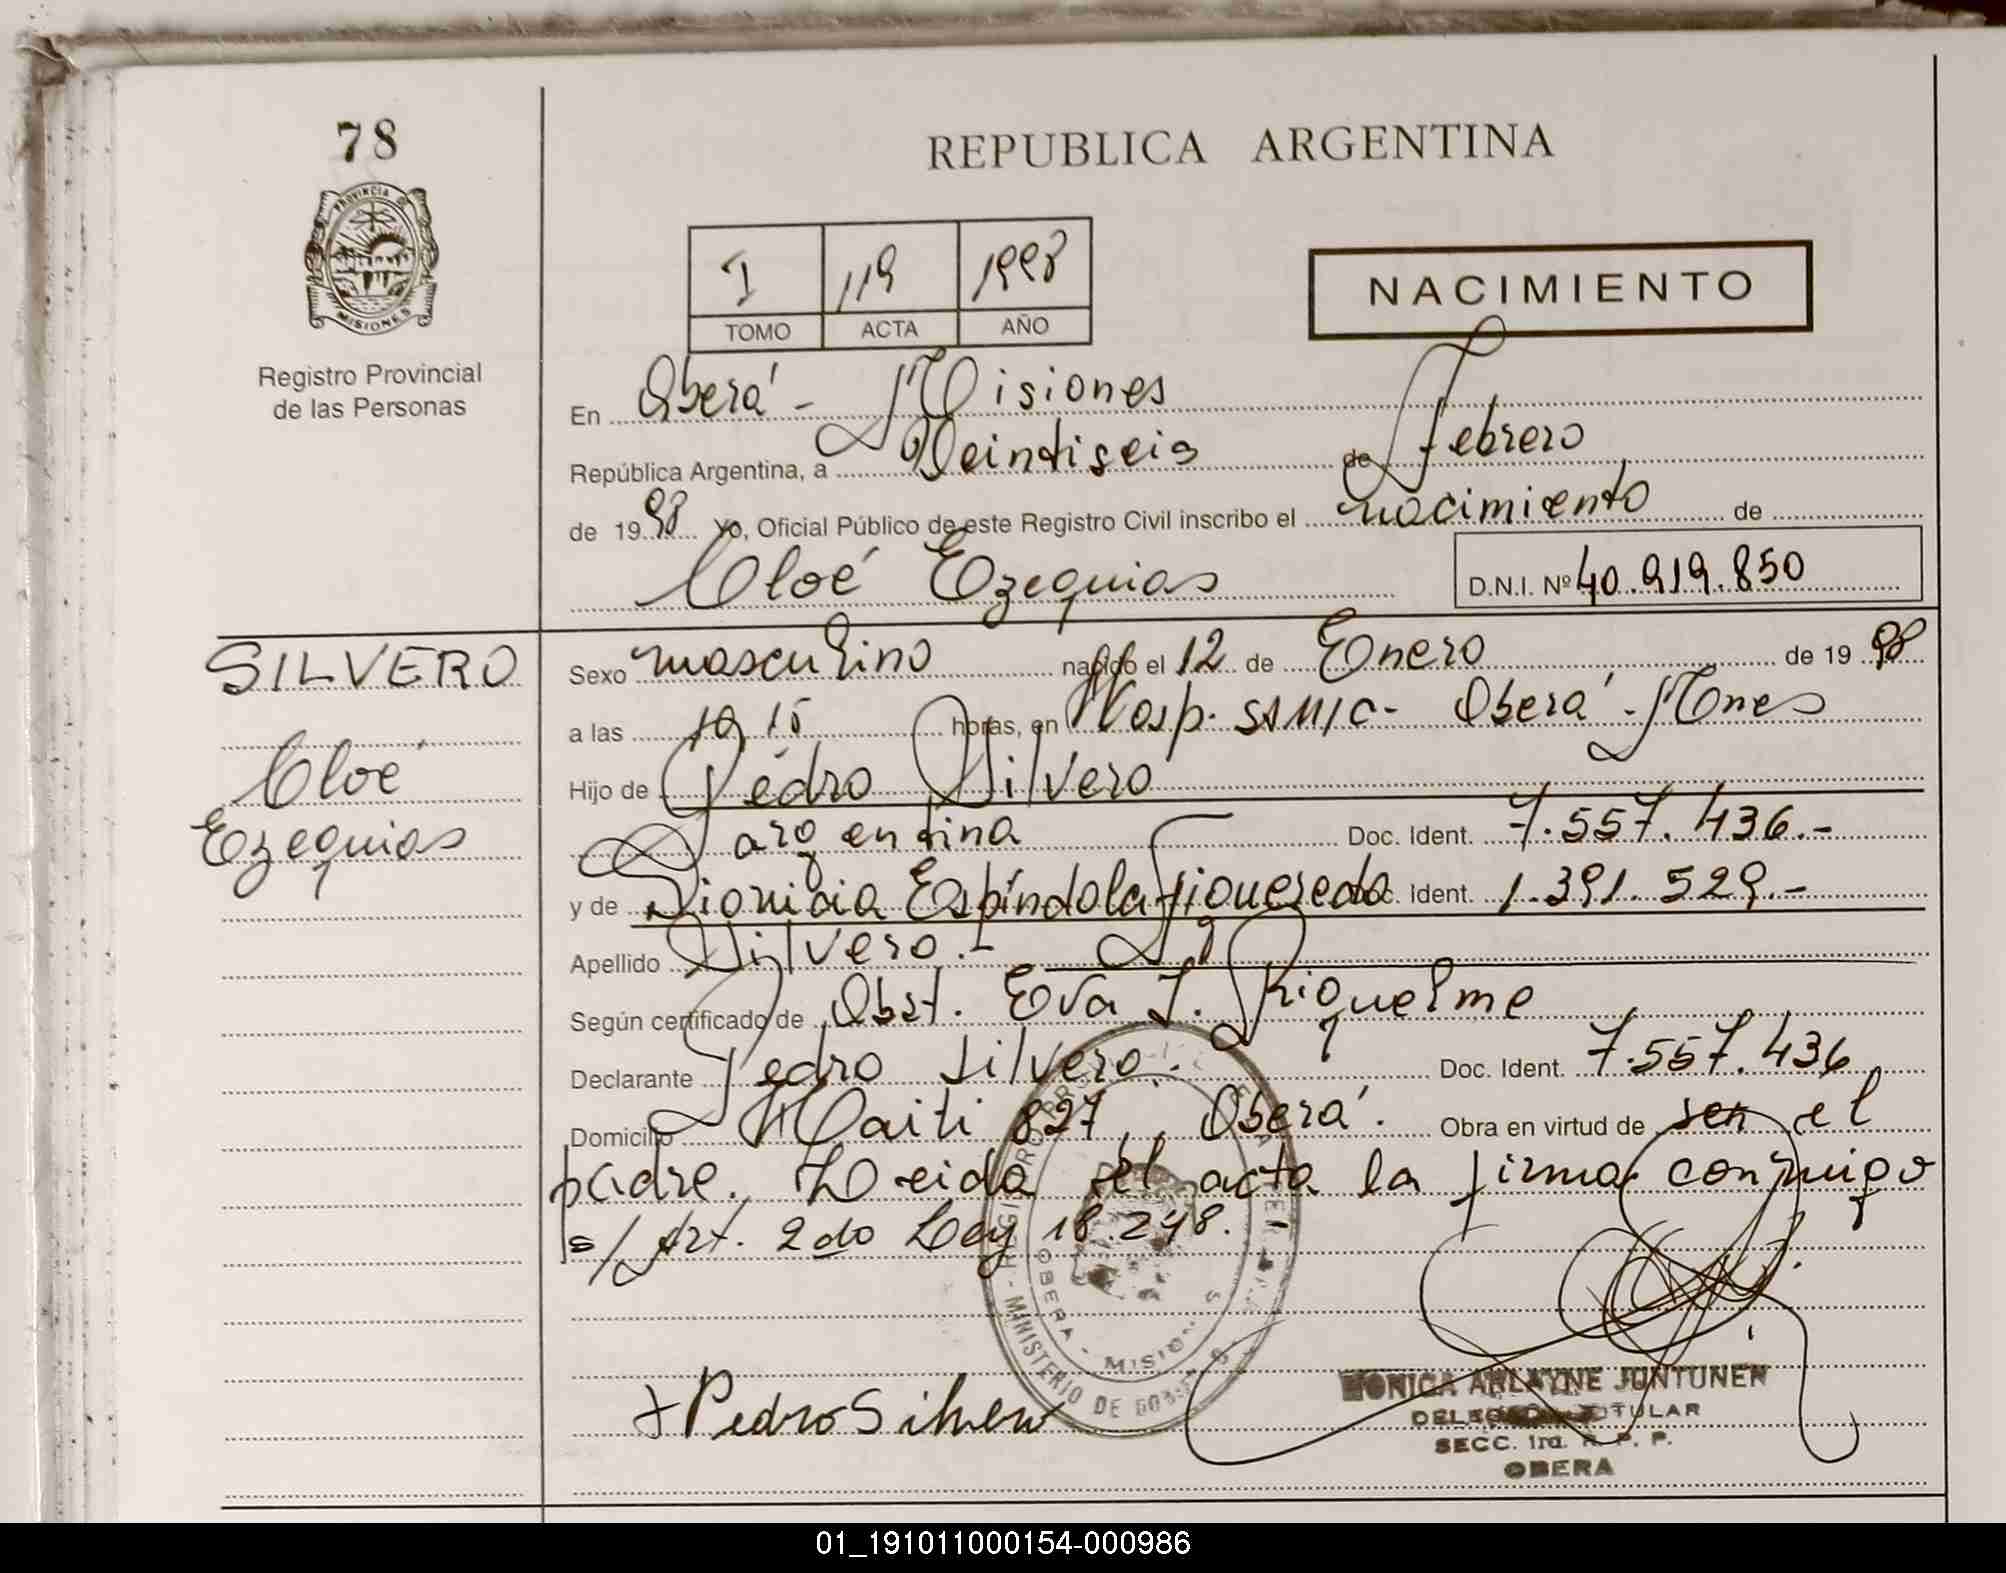 78
REPUBLICA ARGENTINA
PROVINCIA DE
MISIONES
Registro Provincial
de las Personas
I 119 1998
TOMO ACTA AÑO
NACIMIENTO
En Oberá - Misiones
República Argentina, a Veintiseis de Febrero
de 1998 yo, Oficial Público de este Registro Civil inscribo el nacimiento de
Cloé Ezequias
D.N.I. Nº 40.919.850
SILVERO
Cloé
Ezequias
Sexo masculino nacido el 12 de Enero de 1998
a las 10,15 horas, en Hosp. SAMIC - Oberá - Mnes
Hijo de Pedro Silvero
argentina Doc. Ident. 7.557.436.-
y de Dionicia Espíndola Figueredo Doc. Ident. 1.391.529.-
Apellido Silvero.-
Según certificado de Obst. Eva I. Riquelme
Declarante Pedro Silvero. Doc. Ident. 7.557.436
Domicilio Haiti 827, Oberá. Obra en virtud de ser el
padre. Leida el acta la firma conmigo
s/ Art. 2do Ley 18.248.
OBERA - MISIONES
MINISTERIO DE GOBIERNO
+ Pedro Silvero
MONICA ARLAYNE JUNTUNEN
DELEGADA TITULAR
SECC. 1ra. R. P. P.
OBERA
01_191011000154-000986